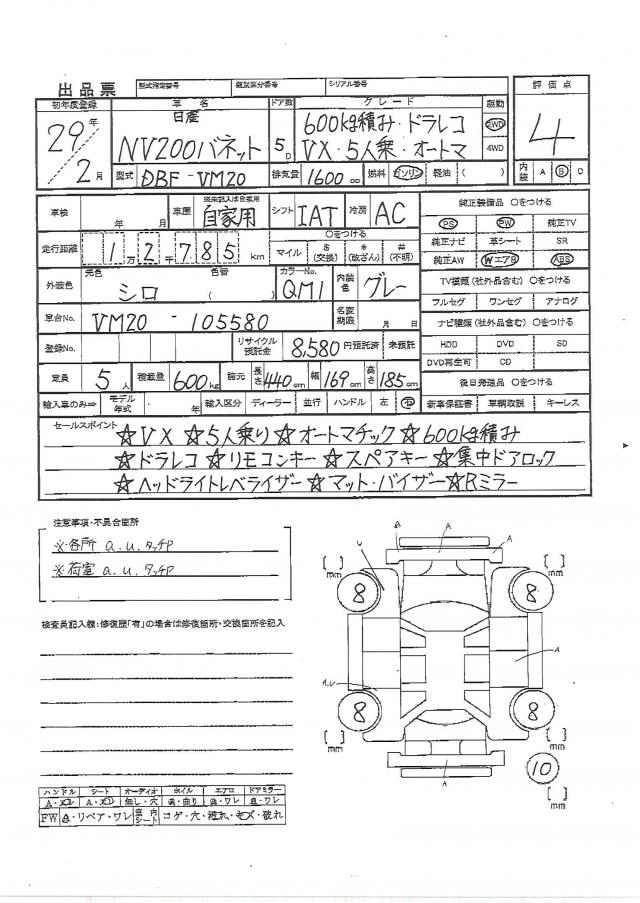 出品票 型式指定番号 類別区分番号 シリアル番号
初年度登録 車名 ドア数 グレード 駆動 評価点
29年 2月
日産
NV200バネット 5D
600kg積み・ドラレコ
VX・5人乗・オートマ
2WD
4WD
4
型式 DBF-VM20 排気量 1600cc 燃料 ガソリン 軽油 ( ) 内装 A B C
車検 年 月 車歴 ※未記入は自家用 自家用 シフト IAT 冷房 AC
純正装備品 ○をつける
PS PW 純正TV
純正ナビ 革シート SR
純正AW WエアB ABS
走行距離 1万2千785km ○をつける マイル $(交換) *(改ざん) #(不明)
TV種類(社外品含む) ○をつける
フルセグ ワンセグ アナログ
外装色 元色 シロ 色替 ( ) カラーNo. QM1 内装色 グレー
車台No. VM20-105580 名変期限 月 日
ナビ種類(社外品含む) ○をつける
HDD DVD SD
DVD再生可 CD
登録No. リサイクル預託金 8,580円預託済 未預託
定員 5人 積載量 600kg 諸元 長さ 440cm 幅 169cm 高さ 185cm
後日発送品 ○をつける
輸入車のみ⇒ モデル年式 年 輸入区分 ディーラー 並行 ハンドル 左 右
新車保証書 車輌取説 キーレス
セールスポイント
☆VX ☆5人乗り ☆オートマチック ☆600kg積み
☆ドラレコ ☆リモコンキー ☆スペアキー ☆集中ドアロック
☆ヘッドライトレベライザー ☆マット・バイザー ☆Rミラー
注意事項・不具合箇所
※各所 a.u.タッチP
※荷室 a.u.タッチP
検査員記入欄:修復歴「有」の場合は修復箇所・交換箇所を記入
A A A
U
[ ] mm [ ] mm
8 8
A
A.U
8 8
[ ] mm [ ] mm
A
10
[ ] mm
ハンドル シート オーディオ ホイル エアロ ドアミラー
無し・穴 曲り ワレ ワレ
FW リペア・ワレ 室内シート コゲ・穴・